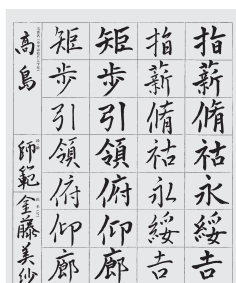 指薪脩祜永綏吉
指薪脩祜永綏吉
矩歩引領俯仰廊
矩歩引領俯仰廊
高島
師範 金藤美紗